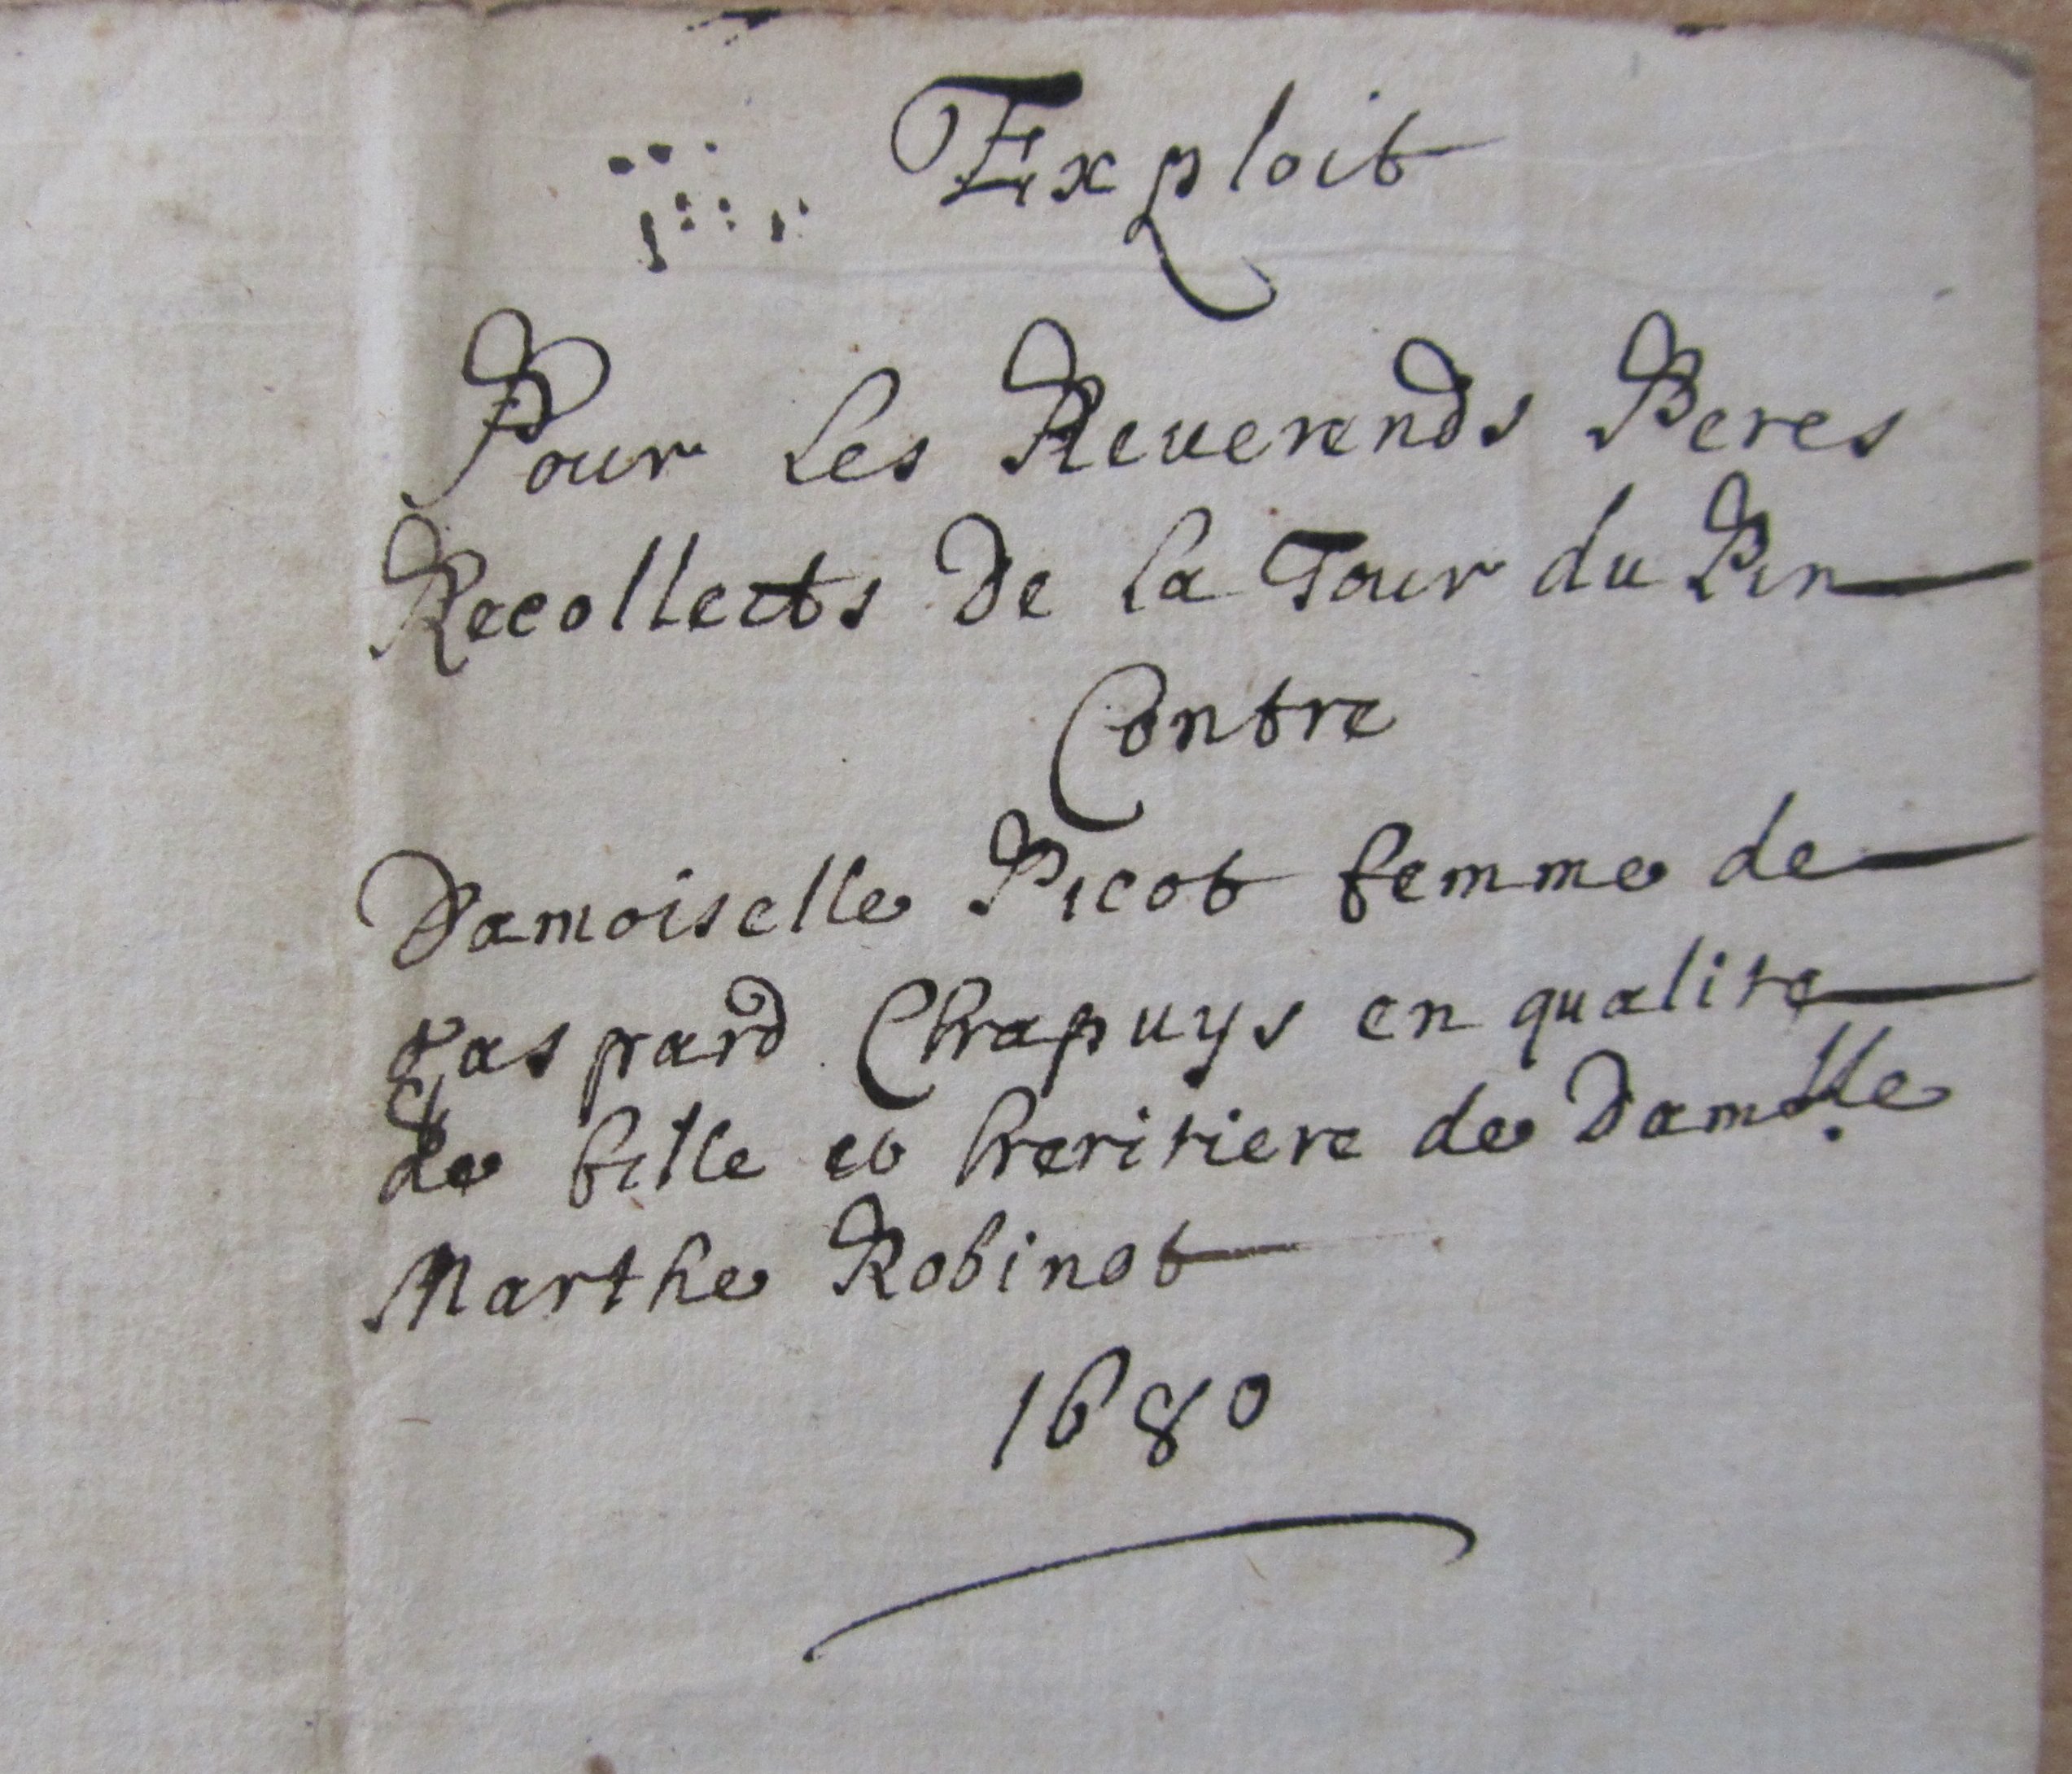 Exploit
Pour les Reuerends Peres
Recollects de la Tour du Pin
Contre
Damoiselle Picot femme de
gaspard Chapuys en qualite
de fille et heritiere de Damlle
Marthe Robinot
1680